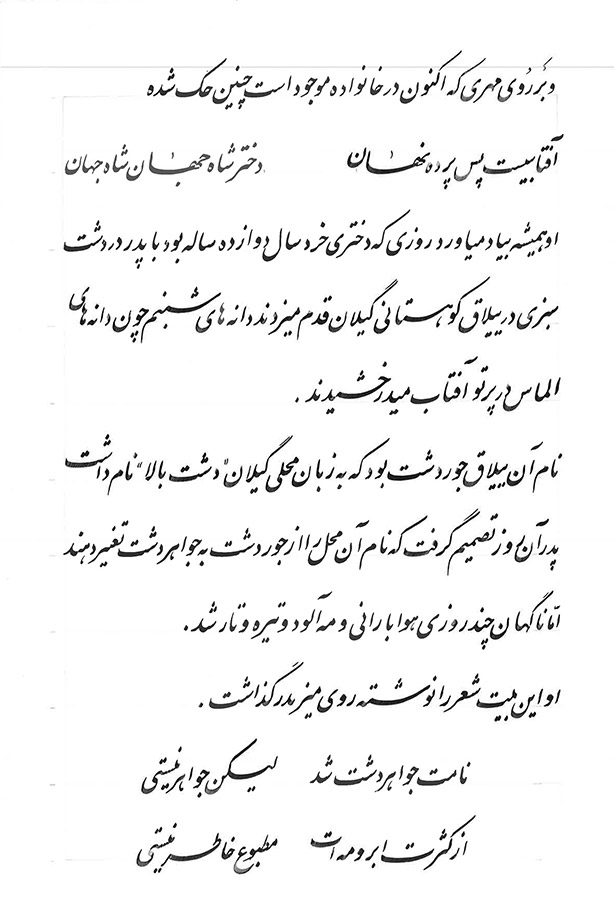 و بَر رُوی مهری که اکنون در خانواده موجود است چنین حک شده
آفتابیست پس پرده نهان دختر شاه جهان شاه جهان
او همیشه بیاد میاورد روزی که دختری خرد سال دوازده ساله بود با پدر در دشت
سبزی در ییلاق کوهستانی گیلان قدم میزدند دانه های شبنم چون دانه های
الماس در پرتو آفتاب میدرخشیدند .
نام آن ییلاق جوردشت بود که به زبان محلی گیلان "دشت بالا" نام داشت
پدر آن روز تصمیم گرفت که نام آن محل را از جوردشت به جواهردشت تغیر دهند
امّا ناگهان چند روزی هوا بارانی و مه آلود و تیره و تار شد .
او این بیت شعر را نوشته روی میز پدر گذاشت .
نامت جواهردشت شد لیکن جواهر نیستی
از کثرت ابر و مه ات مطبوع خاطر نیستی